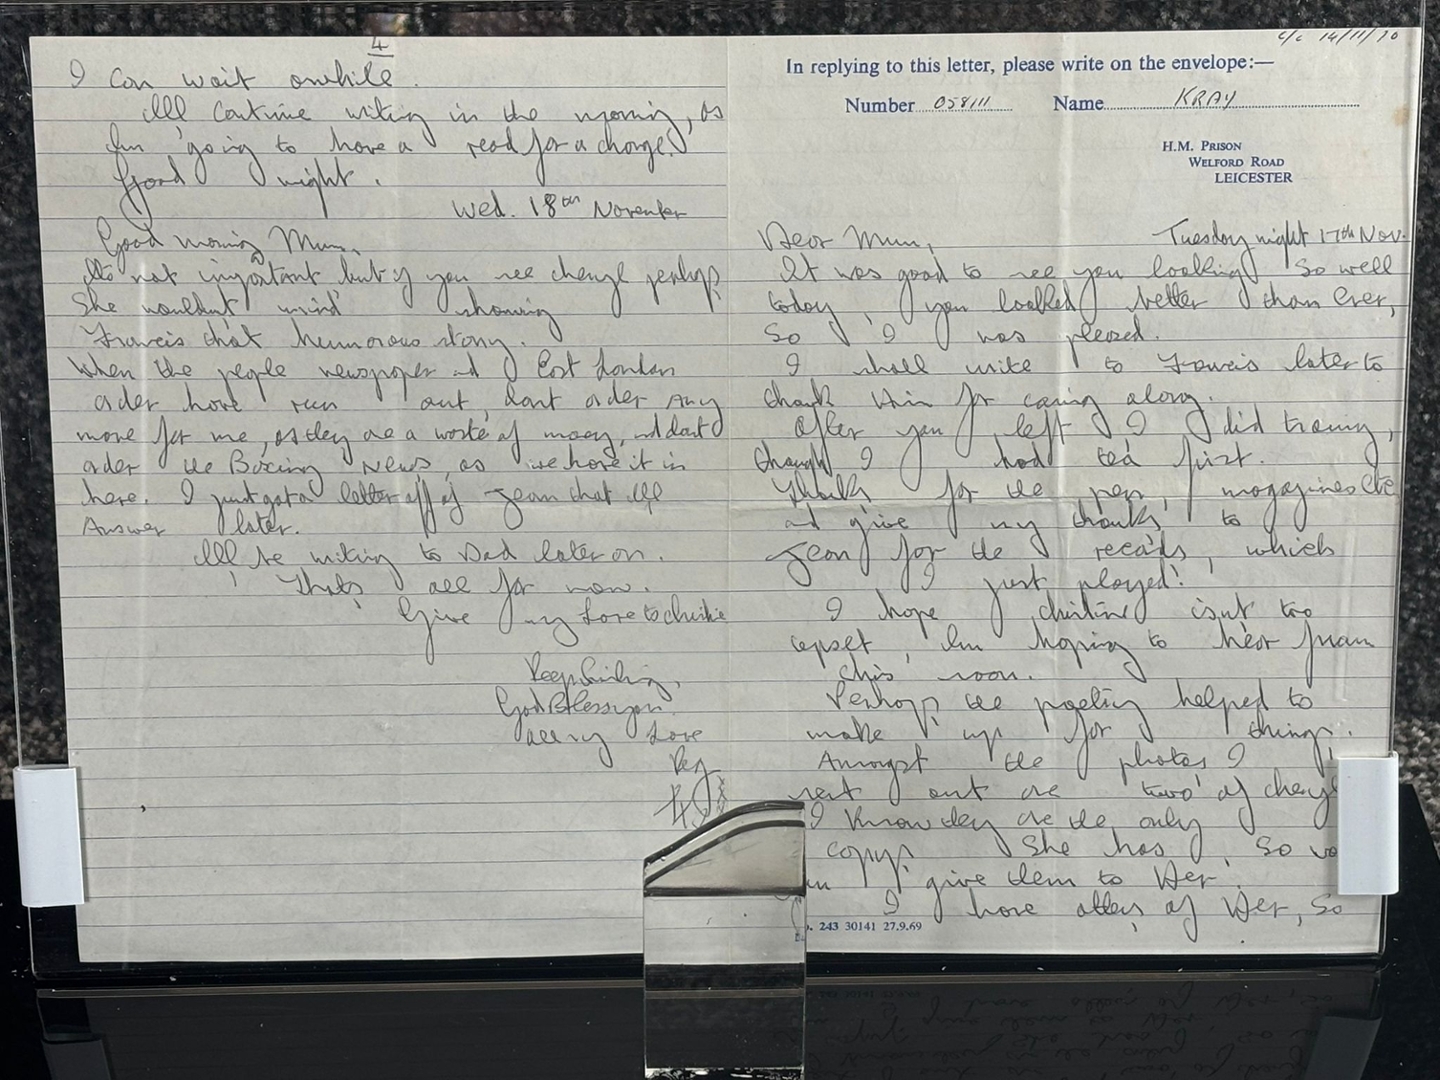 4
I can wait awhile.
I'll continue writing in the morning, as
I'm going to have a read for a change.
Good night.
Wed. 18th November
Good morning Mum,
Its not important but if you see cheryl perhaps
She wouldn't mind showing
Francis that humorous story.
When the people newspaper and East London
order have run out, dont order any
more for me, as they are a waste of money, and dont
order the Boxing News, as we have it in
here. I just got a letter off of Jean that I'll
Answer later.
I'll be writing to Dad later on.
Thats all for now.
Give my Love to
Keep Smiling,
God Bless you.
all my Love
Reg
c/c 14/11/70
In replying to this letter, please write on the envelope:—
Number 058111 Name KRAY
H.M. PRISON
WELFORD ROAD
LEICESTER
Tuesday night 17th Nov.
Dear Mum,
It was good to see you looking so well
today, you looked better than Ever,
So I was pleased.
I shall write to Francis later to
thank him for coming along.
After you left I did training,
though I had tea first.
Thanks for the pen, magazines etc
and give my thanks to
Jean for the records, which
I just played!
I hope christine isn't too
upset, I'm hoping to hear from
this soon.
Perhaps the meeting helped to
make up for things.
Amongst the photos I
sent out are two of cheryl
I know they are the only
copys She has, So
I give them to Her.
I have others of Her, So
243 30141 27.9.69